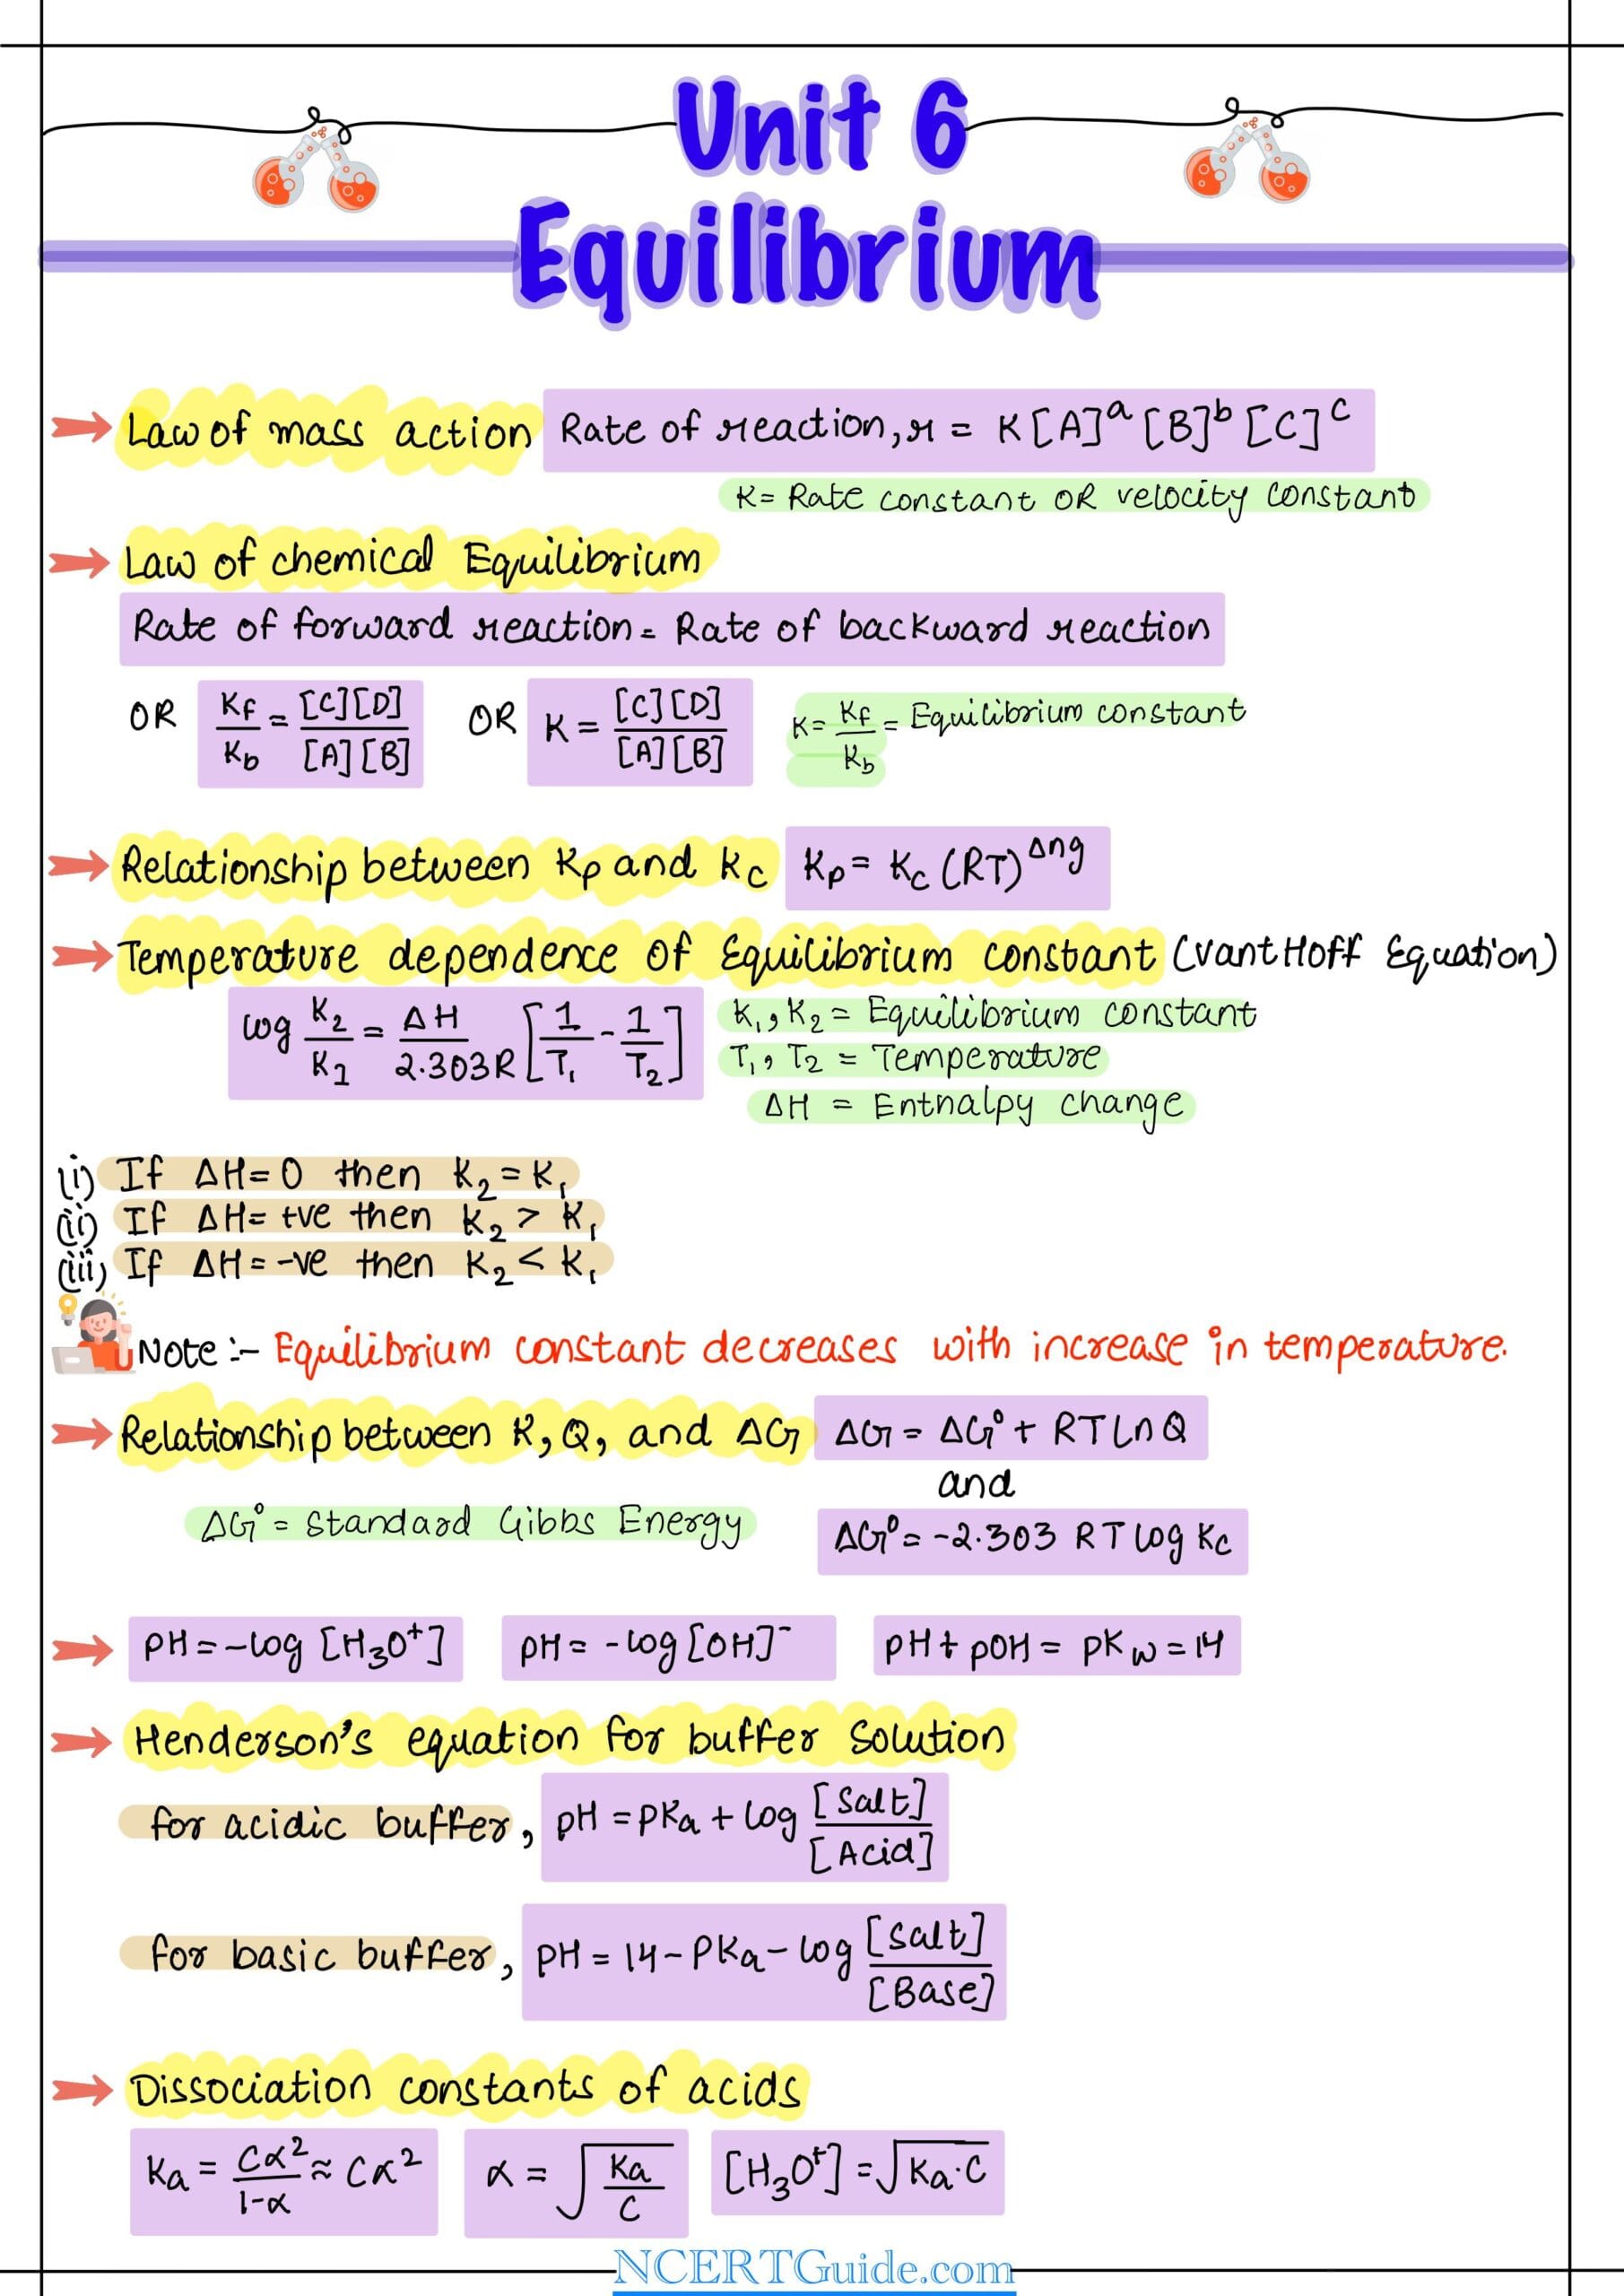 Unit 6
Equilibrium
Law of mass action Rate of reaction, r = K[A]ᵃ [B]ᵇ [C]ᶜ
K = Rate constant OR velocity constant
Law of chemical Equilibrium
Rate of forward reaction = Rate of backward reaction
OR Kf/Kb = [C][D]/[A][B] OR K = [C][D]/[A][B] K = Kf/Kb = Equilibrium constant
Relationship between Kp and Kc Kp = Kc (RT)^Δng
Temperature dependence of Equilibrium constant (Vant Hoff Equation)
log K₂/K₁ = ΔH/2.303R [1/T₁ - 1/T₂]
K₁, K₂ = Equilibrium constant
T₁, T₂ = Temperature
ΔH = Enthalpy change
(i) If ΔH = 0 then K₂ = K₁
(ii) If ΔH = +ve then K₂ > K₁
(iii) If ΔH = -ve then K₂ < K₁
Note :- Equilibrium constant decreases with increase in temperature.
Relationship between K, Q, and ΔG ΔG = ΔG° + RT ln Q
and
ΔG° = Standard Gibbs Energy ΔG° = -2.303 RT log Kc
pH = -log [H₃O⁺] pH = -log [OH]⁻ pH + pOH = pKw = 14
Henderson's equation for buffer solution
for acidic buffer, pH = PKa + log [Salt]/[Acid]
for basic buffer, pH = 14 - PKa - log [Salt]/[Base]
Dissociation constants of acids
Ka = Cα²/1-α ≈ Cα² α = √(Ka/C) [H₃O⁺] = √(Ka·C)
NCERTGuide.com